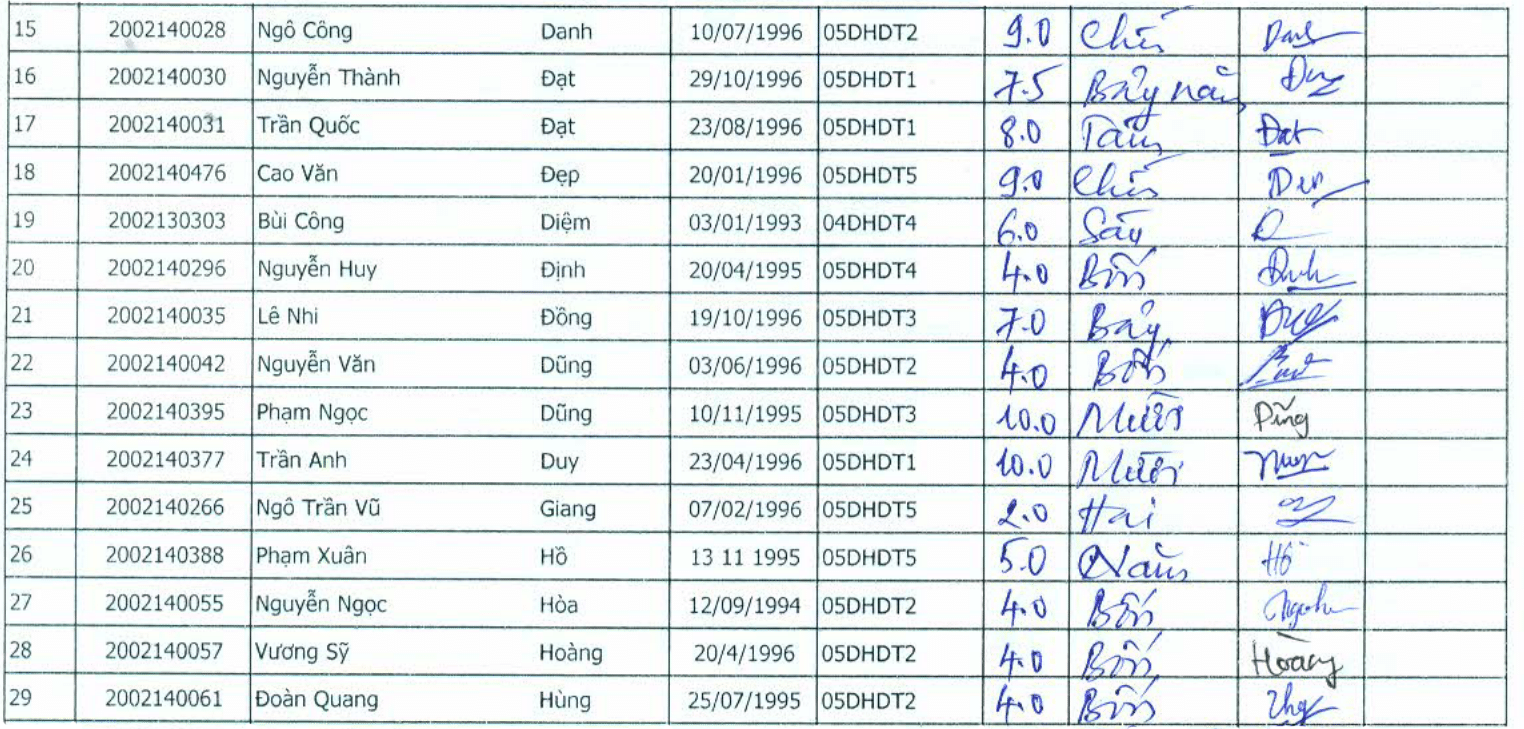 15 2002140028 Ngô Công Danh 10/07/1996 05DHDT2 9.0 Chín Danh
16 2002140030 Nguyễn Thành Đạt 29/10/1996 05DHDT1 7.5 Bảy năm
17 2002140031 Trần Quốc Đạt 23/08/1996 05DHDT1 8.0 Tám Đạt
18 2002140476 Cao Văn Đẹp 20/01/1996 05DHDT5 9.0 Chín
19 2002130303 Bùi Công Diệm 03/01/1993 04DHDT4 6.0 Sáu
20 2002140296 Nguyễn Huy Định 20/04/1995 05DHDT4 4.0 Bốn
21 2002140035 Lê Nhi Đồng 19/10/1996 05DHDT3 7.0 Bảy
22 2002140042 Nguyễn Văn Dũng 03/06/1996 05DHDT2 4.0 Bốn
23 2002140395 Phạm Ngọc Dũng 10/11/1995 05DHDT3 10.0 Mười Dũng
24 2002140377 Trần Anh Duy 23/04/1996 05DHDT1 10.0 Mười
25 2002140266 Ngô Trần Vũ Giang 07/02/1996 05DHDT5 2.0 Hai
26 2002140388 Phạm Xuân Hồ 13 11 1995 05DHDT5 5.0 Năm Hồ
27 2002140055 Nguyễn Ngọc Hòa 12/09/1994 05DHDT2 4.0 Bốn
28 2002140057 Vương Sỹ Hoàng 20/4/1996 05DHDT2 4.0 Bốn Hoàng
29 2002140061 Đoàn Quang Hùng 25/07/1995 05DHDT2 4.0 Bốn